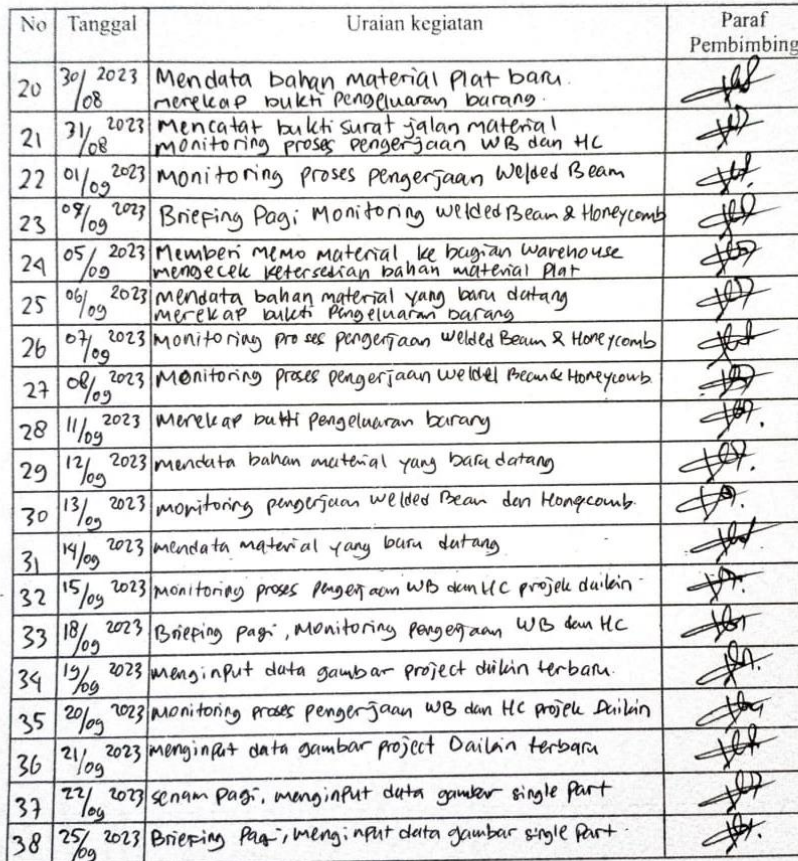 No Tanggal Uraian kegiatan Paraf Pembimbing
20 30/08 2023 Mendata bahan material Plat baru.
merekap bukti Pengeluaran barang.
21 31/08 2023 Mencatat bukti surat jalan material
monitoring proses pengerjaan WB dan HC
22 01/09 2023 Monitoring proses pengerjaan Welded Beam
23 /09 2023 Briefing Pagi Monitoring Welded Beam & Honeycomb
24 05/09 2023 Memberi Memo material ke bagian Warehouse
mengecek ketersedian bahan material Plat
25 06/09 2023 Mendata bahan material yang baru datang
merekap bukti Pengeluaran barang
26 07/09 2023 Monitoring proses pengerjaan Welded Beam & Honeycomb
27 08/09 2023 Monitoring proses pengerjaan Welded Beam & Honeycomb
28 11/09 2023 Merekap bukti pengeluaran barang
29 12/09 2023 mendata bahan material yang baru datang
30 13/09 2023 monitoring pengerjaan Welded Beam dan Honeycomb.
31 14/09 2023 mendata material yang baru datang
32 15/09 2023 monitoring proses pengerjaan WB dan HC projek daikin
33 18/09 2023 Briefing pagi, Monitoring pengerjaan WB dan HC
34 19/09 2023 menginput data gambar project daikin terbaru.
35 20/09 2023 monitoring proses pengerjaan WB dan HC projek Daikin
36 21/09 2023 menginput data gambar project Daikin terbaru
37 22/09 2023 senam pagi, menginput data gambar single Part
38 25/09 2023 Briefing Pagi, menginput data gambar single Part.